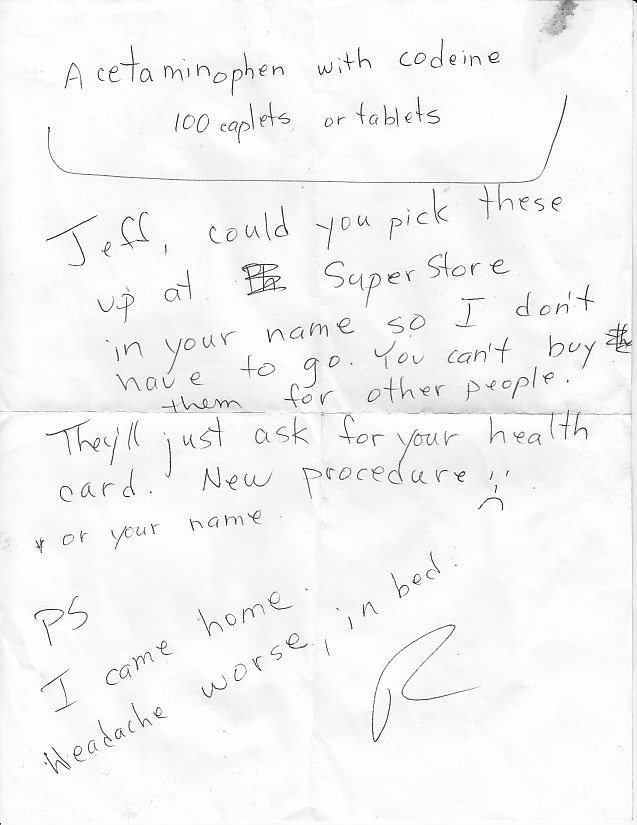 Acetaminophen with codeine
100 caplets or tablets
Jeff, could you pick these
up at SuperStore
in your name so I don't
have to go. You can't buy
them for other people.
They'll just ask for your health
card. New procedure !!
* or your name.
PS
I came home.
Headache worse, in bed.
R